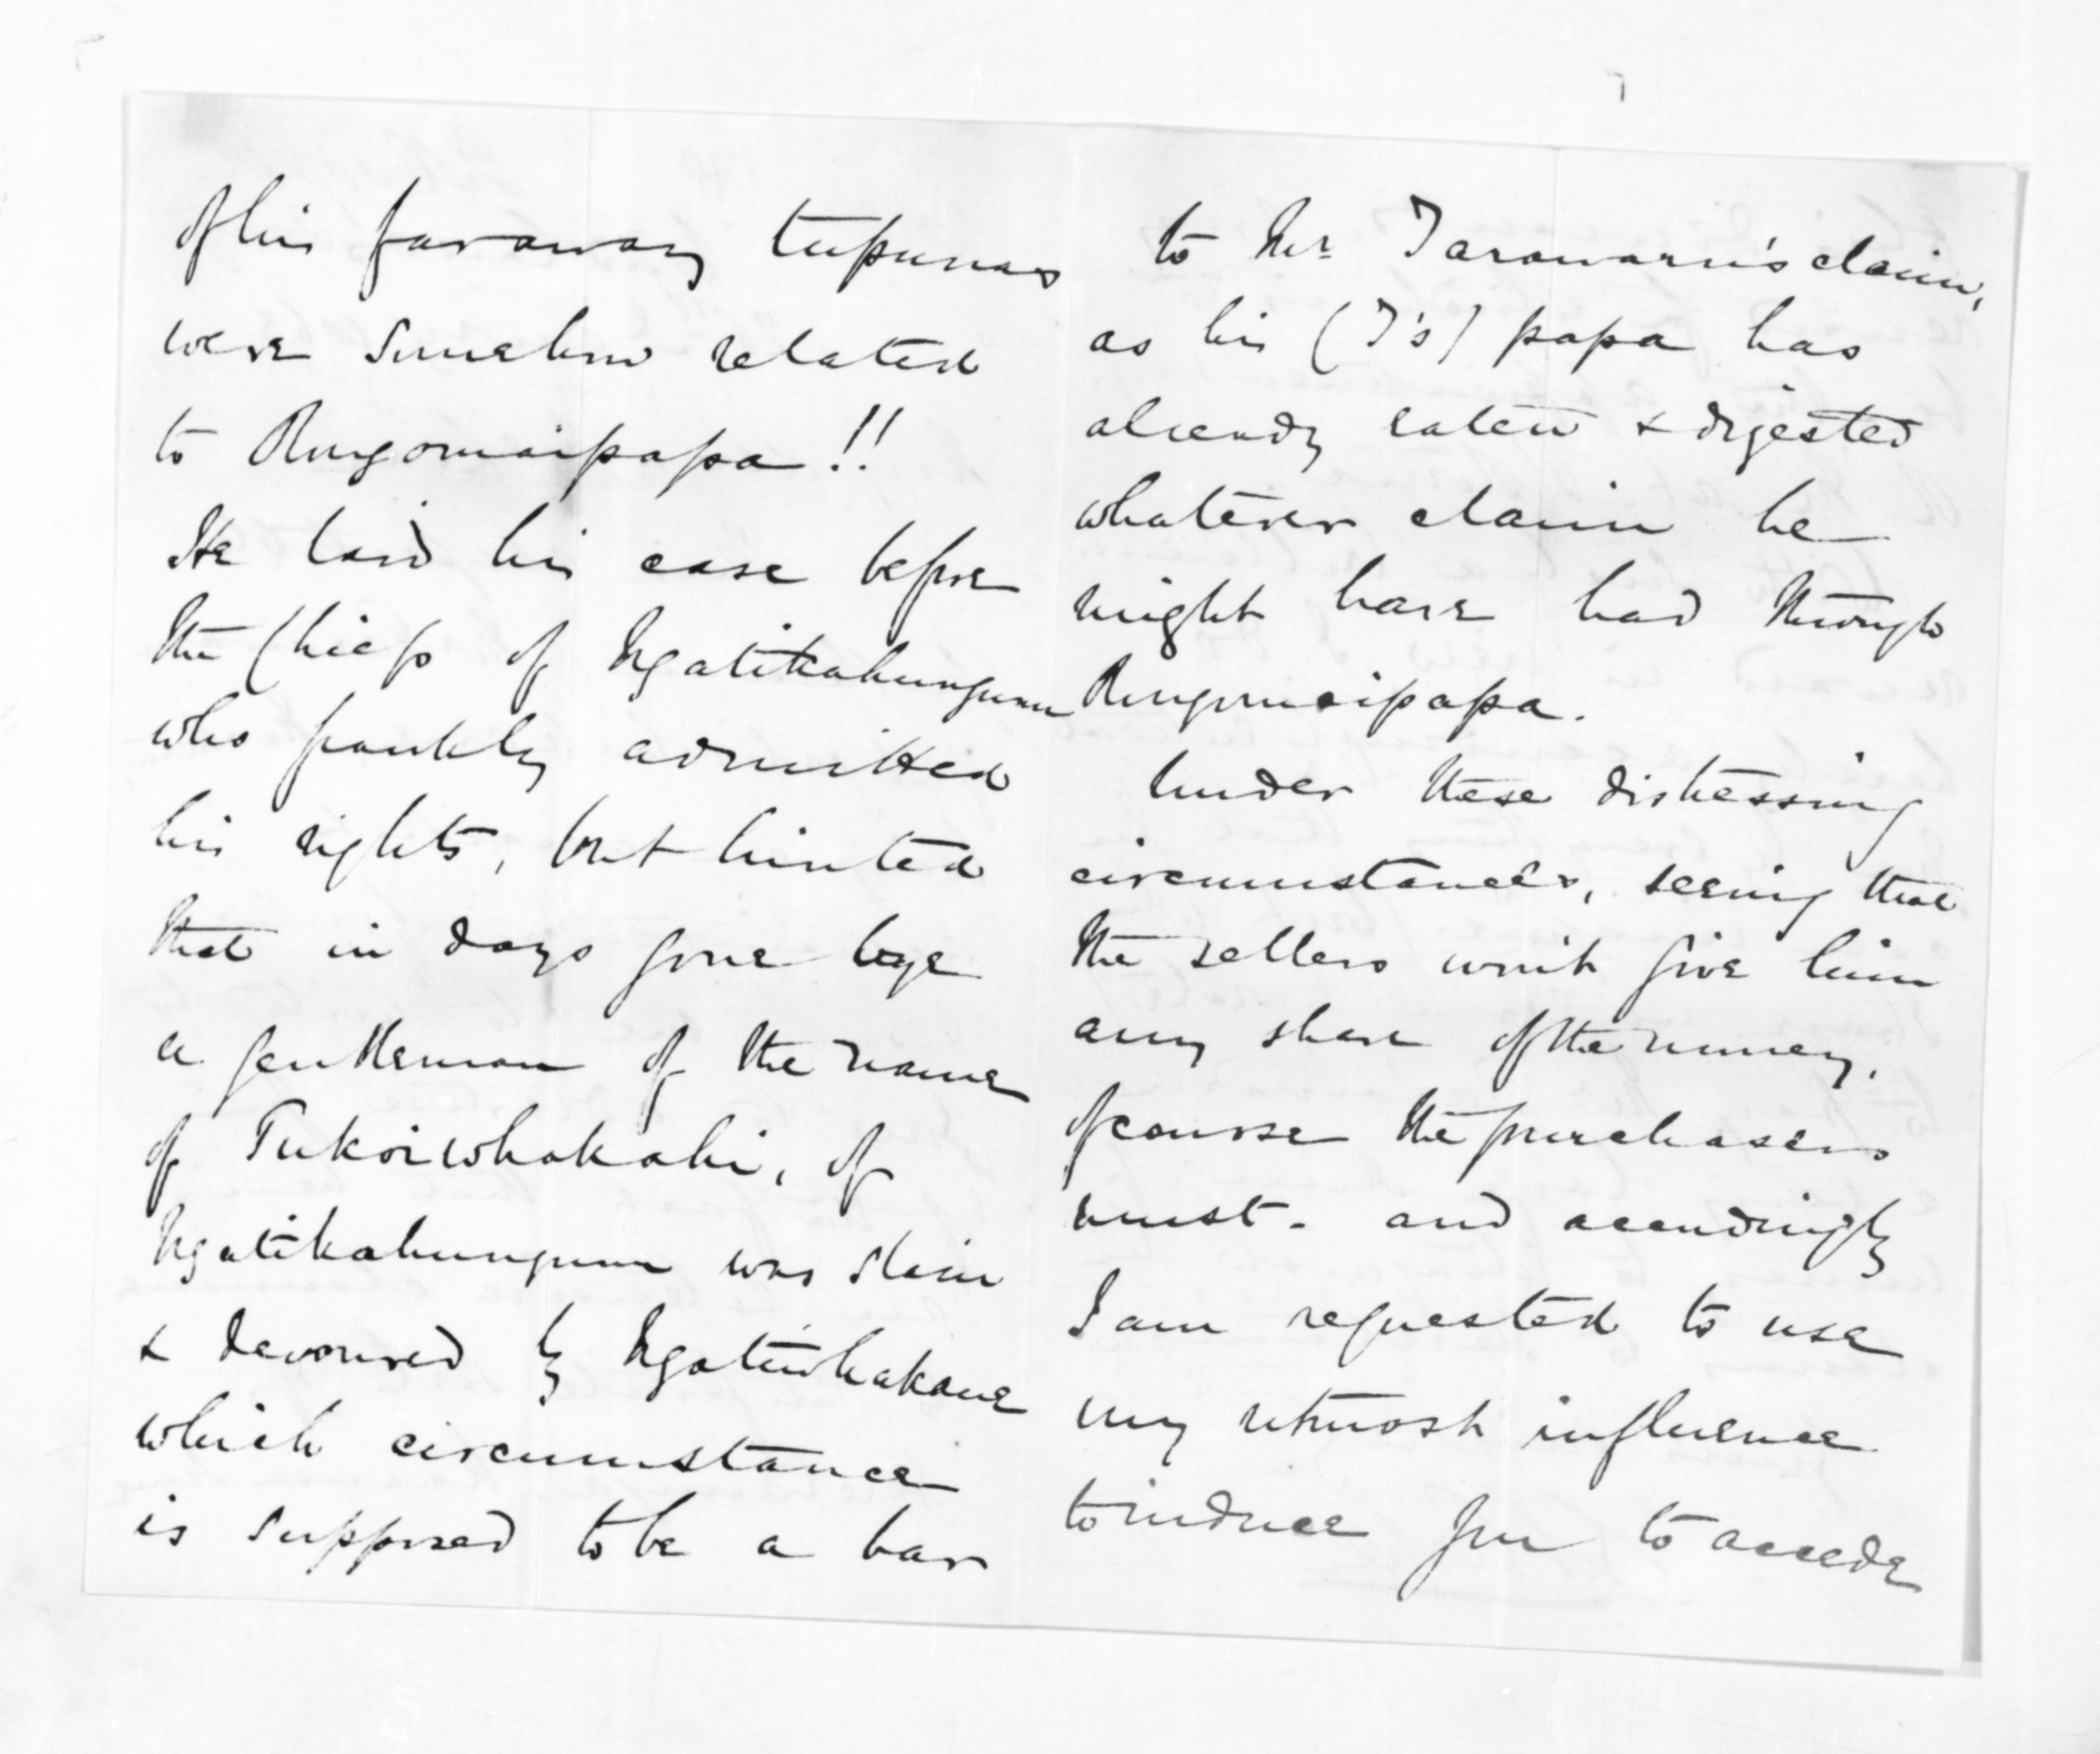 of his faraway tupunas
were somehow related
to Rongomaipapa!!
He laid his case before
the Chiefs of Ngatikahungunu
who frankly admitted
his rights, but hinted
that in days gone bye
a gentleman of the name
of Tukoiwhakahi, of
Ngatikahungunu was slain
& devoured by Ngatiwhakaue
which circumstance
is supposed to be a bar
to Mr. Tarawaru's claim,
as his (T's) papa has
already eaten & digested
whatever claim he
might have had through
Rongomaipapa.
Under these distressing
circumstances, seeing that
the sellers won't give him
any share of the money,
of course the purchasers
must - and accordingly
I am requested to use
my utmost influence
to induce you to accede